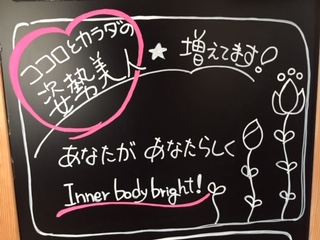 ココロとカラダの
姿勢美人★増えてます!
あなたが あなたらしく
Inner body bright!